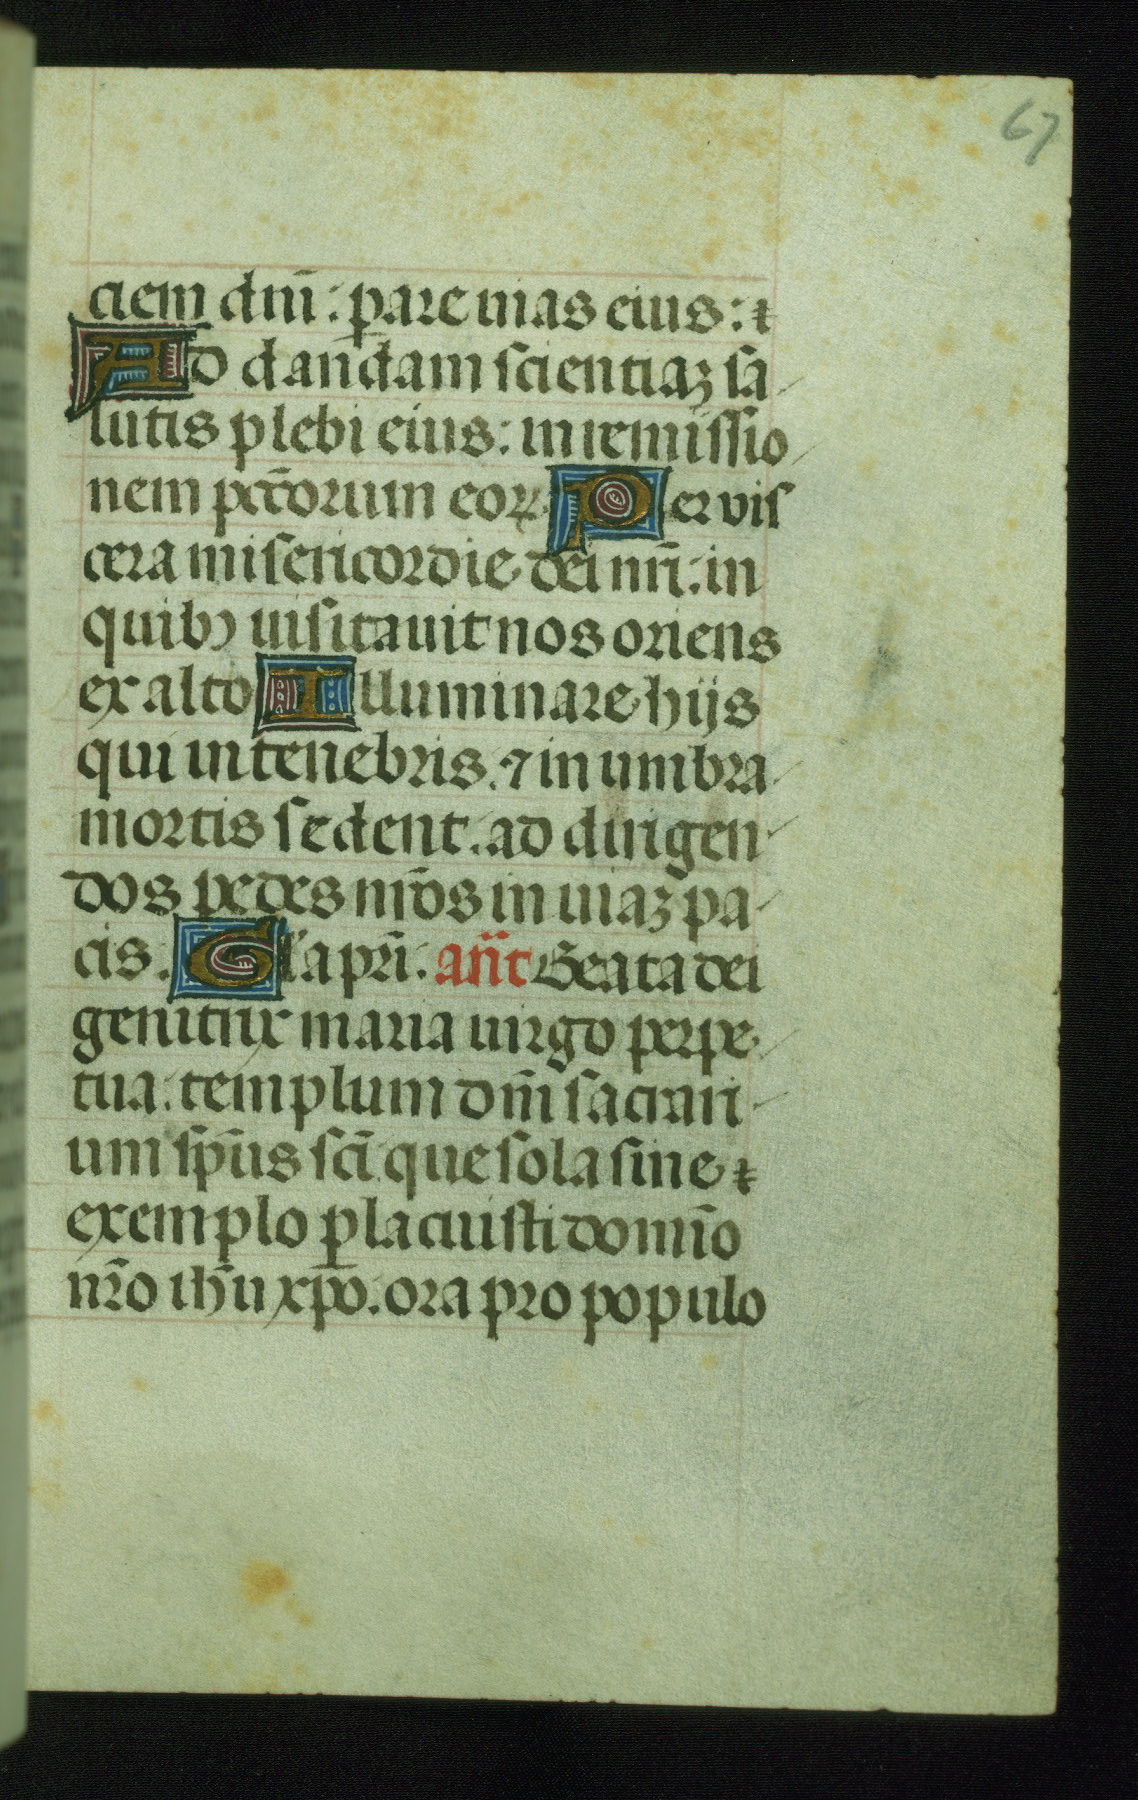 67
ciem dn̄i: ꝑare uias eius: ⁊
Ad dandam scientiaꝫ sa
lutis plebi eius: in remissio
nem pctōrum eoꝝ. Per vis
cera misericordie dei nr̄i: in
quibꝯ uisitauit nos oriens
ex alto Illuminare hijs
qui in tenebris. ⁊ in umbra
mortis sedent. ad dirigen
dos pedes nr̄os in uiaꝫ pa
cis. Gl'a pr̄i. an̄t Beata dei
genitrix maria uirgo perpe
tua: templum dn̄i sacrari
um sp̄us sc̄i: que sola sine ⁊
exemplo ꝑlacuisti domīo
nr̄o ih̄u xp̄o. ora pro populo